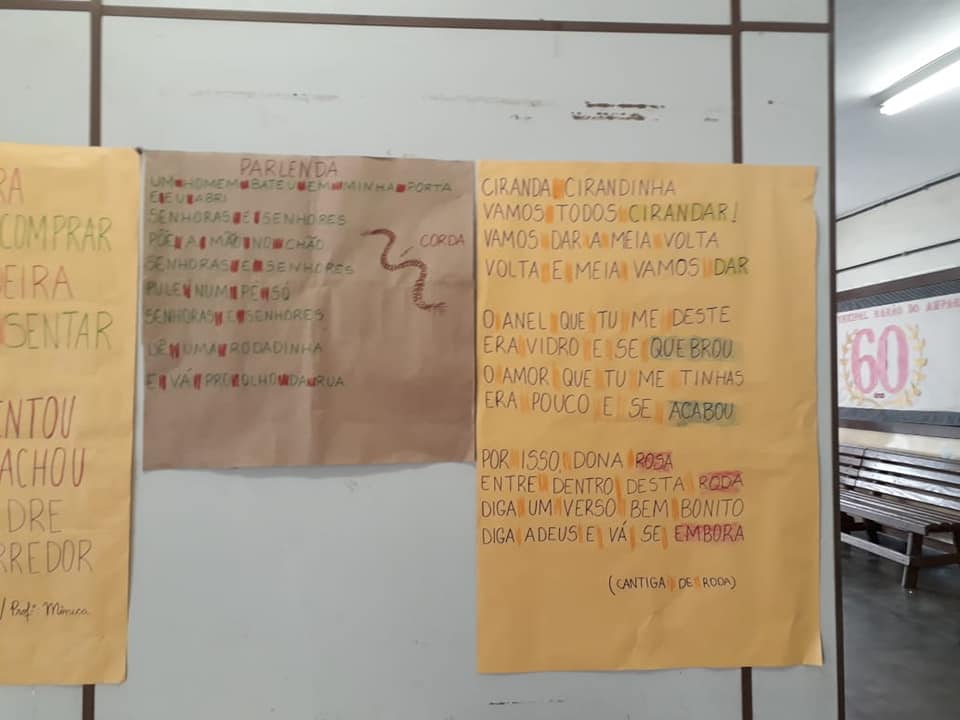 RA
COMPRAR
EIRA
SENTAR
NTOU
ACHOU
DRE
RREDOR
/ Profª: Mônica
PARLENDA
UM HOMEM BATEU EM MINHA PORTA
E EU ABRI
SENHORAS E SENHORES
PÕE A MÃO NO CHÃO
SENHORAS E SENHORES
PULE NUM PÉ SÓ
SENHORAS E SENHORES
DÊ UMA RODADINHA
E VÁ PRO OLHO DA RUA
CORDA
CIRANDA CIRANDINHA
VAMOS TODOS CIRANDAR!
VAMOS DAR A MEIA VOLTA
VOLTA E MEIA VAMOS DAR
O ANEL QUE TU ME DESTE
ERA VIDRO E SE QUEBROU
O AMOR QUE TU ME TINHAS
ERA POUCO E SE ACABOU
POR ISSO, DONA ROSA
ENTRE DENTRO DESTA RODA
DIGA UM VERSO BEM BONITO
DIGA ADEUS E VÁ SE EMBORA
(CANTIGA DE RODA)
BARÃO DO
60
anos